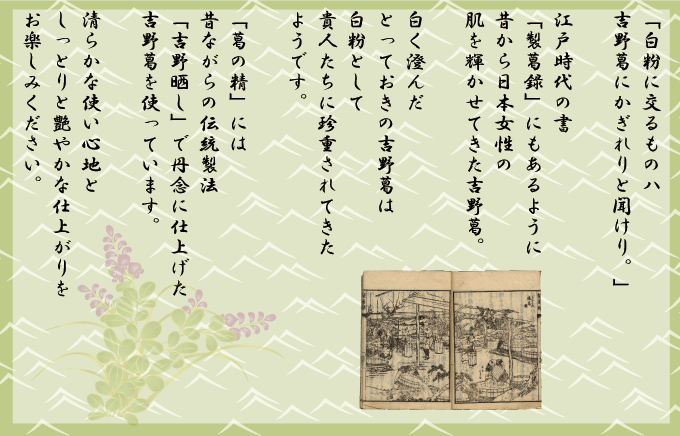 「白粉に交るものハ
吉野葛にかぎれりと聞けり。」
江戸時代の書
「製葛録」にもあるように
昔から日本女性の
肌を輝かせてきた吉野葛。
白く澄んだ
とっておきの吉野葛は
白粉として
貴人たちに珍重されてきた
ようです。
「葛の精」には
昔ながらの伝統製法
「吉野晒し」で丹念に仕上げた
吉野葛を使っています。
清らかな使い心地と
しっとりと艶やかな仕上がりを
お楽しみください。